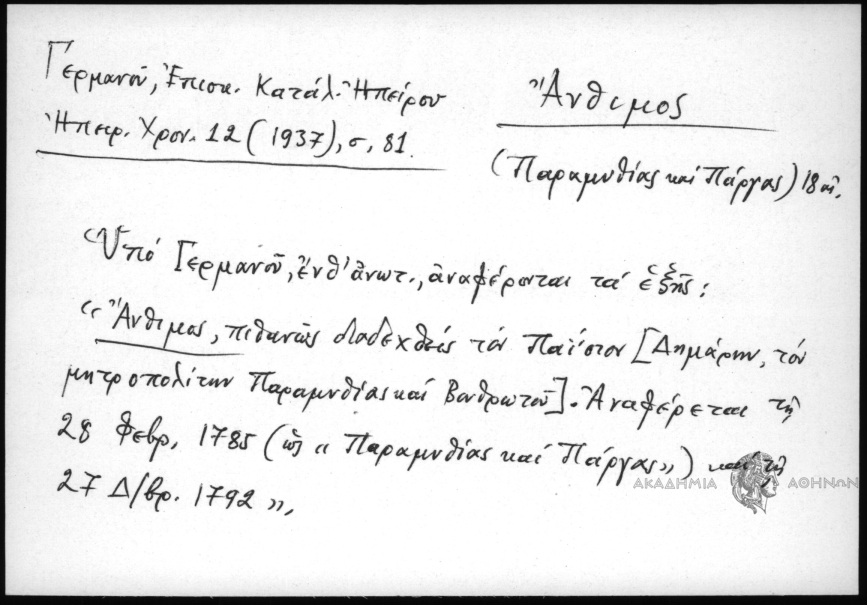 Γερμανοῦ, Ἐπισκ. Κατάλ. Ἠπείρου
Ἠπειρ. Χρον. 12 (1937), σ. 81.
Ἄνθιμος
(Παραμυθίας καί Πάργας) 18 αἰ.
Ὑπό Γερμανοῦ, ἔνθ' ἀνωτ., ἀναφέρονται τά ἑξῆς:
«Ἄνθιμος, πιθανῶς διαδεχθείς τόν Παΐσιον [Δημάρην, τόν
μητροπολίτην Παραμυθίας καί Βουθρωτοῦ]. Ἀναφέρεται τῇ
28 Φεβρ. 1785 (ὡς «Παραμυθίας καί Πάργας») καί τῇ
27 Δ/βρ. 1792».
ΑΚΑΔΗΜΙΑ ΑΘΗΝΩΝ